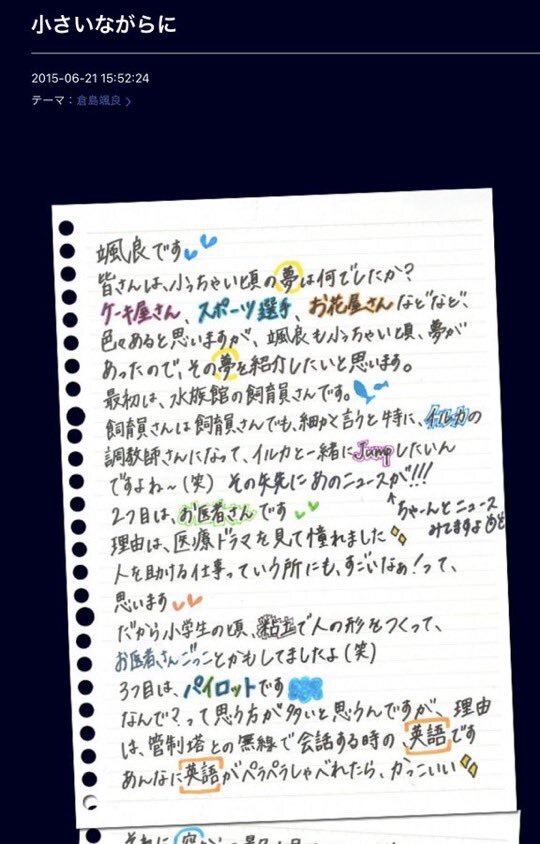 小さいながらに
2015-06-21 15:52:24
テーマ：倉島颯良
颯良です
皆さんは、小っちゃい頃の夢は何でしたか？
ケーキ屋さん、スポーツ選手、お花屋さんなどなど、
色々あると思いますが、颯良も小っちゃい頃、夢が
あったので、その夢を紹介したいと思います。
最初は、水族館の飼育員さんです。
飼育員さんは飼育員さんでも、細かく言うと特に、イルカの
調教師さんになって、イルカと一緒にJumpしたいん
ですよね～(笑) その矢先にあのニュースが!!!
ちゃーんとニュース
みてますよ
2つ目は、お医者さんです
理由は、医療ドラマを見て憧れました
人を助ける仕事っていう所にも、すごいなぁ！って、
思います
だから小学生の頃、粘土で人の形をつくって、
お医者さんごっことかもしてましたよ(笑)
3つ目は、パイロットです
なんで？って思う方が多いと思うんですが、理由
は、管制塔との無線で会話する時の、英語です
あんなに英語がペラペラしゃべれたら、かっこいい